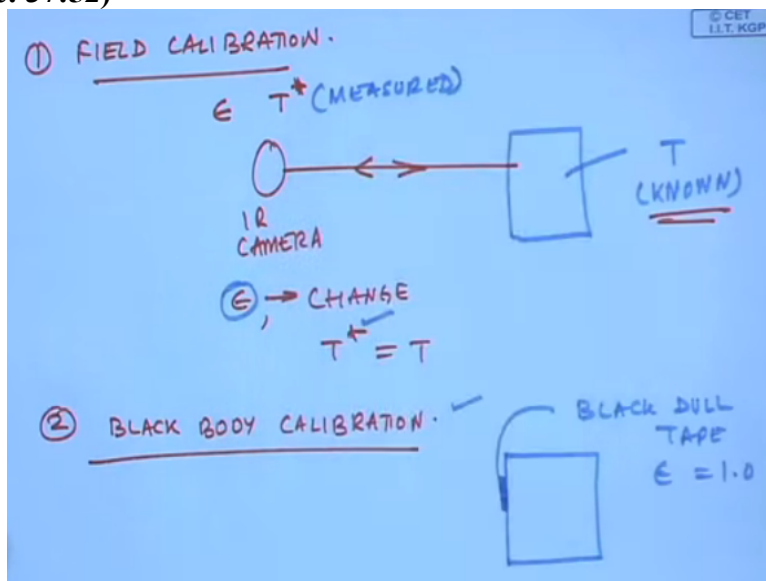 : 37:32)
© CET
I.I.T. KGP
① FIELD CALIBRATION.
ϵ T* (MEASURED)
T
(KNOWN)
IR
CAMERA
ϵ, → CHANGE
T* = T
② BLACK BODY CALIBRATION.
BLACK DULL
TAPE
ϵ = 1.0